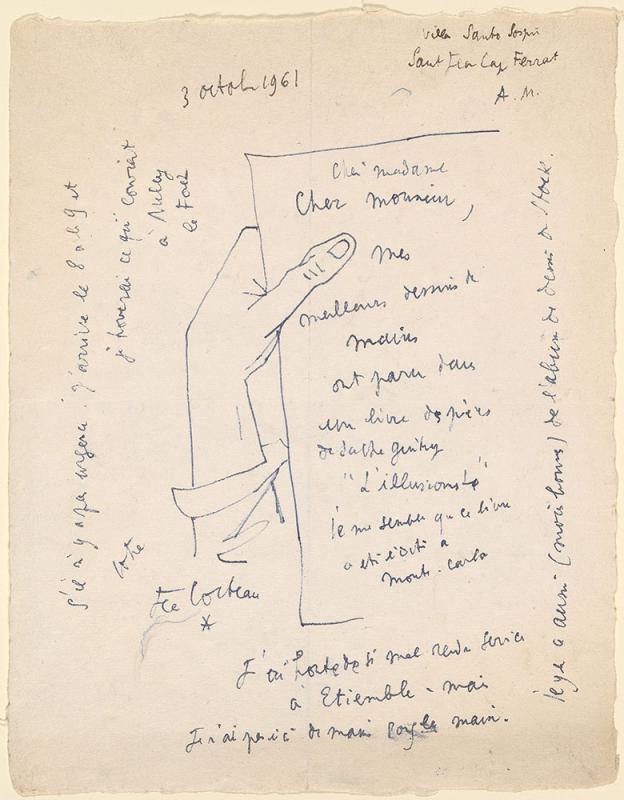 Villa Santo Sospir
Saint Jean Cap Ferrat
A. M.
3 octobre 1961
Cher madame
Cher monsieur,
mes
meilleurs dessins de
mains
ont paru dans
un livre de pièces
de Sacha Guitry
"L'illusioniste"
Il me semble que ce livre
a été édité à
Monte-Carlo
J'ai honte de si mal rendre service
à Etiemble - mais
Je n'ai pas ici de main sous la main.
Il y a aussi (moins bonnes) de l'album de dessins de Stock.
S'il n'y a pas urgence. J'arrive le 8 ou le 9 et
je trouverai ce qui convient
à Milly
la Forêt
Jean Cocteau
*